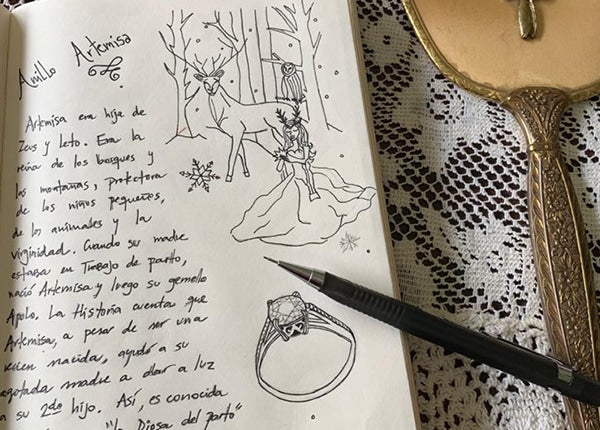 Anillo Artemisa
Artemisa era hija de
Zeus y Leto. Era la
reina de los bosques y
las montañas, protectora
de los niños pequeños,
de los animales y la
virginidad. Cuando su madre
estaba en Trabajo de parto,
nació Artemisa y luego su gemelo
Apolo. La Historia cuenta que
Artemisa, a pesar de ser una
recien nacida, ayudó a su
agotada madre a dar a luz
a su 2do hijo. Así, es conocida
"la Diosa del parto"